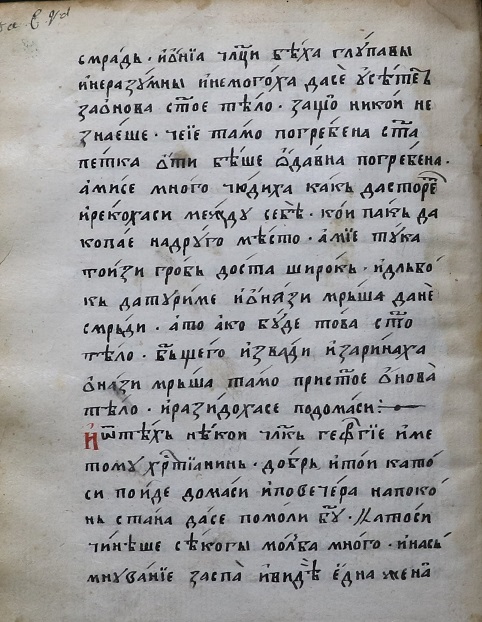 смрадь · иѻнїа чл҃ци бѣха глупавы
инеразумны инемогоха дасе ѹсѣтеть
заѻнова ст҃ое тѣло · защо никои не
знаеше · чеїе тамо погребена ст҃а
петка ѻти бѣше ѿдавна погребена ·
амисе много чюдиха какь дасторе
ирекохаси между себѣ · кои пакь да
копае надруго мѣсто · амїе тука
тоизи гробь доста широкь · идльбо
кь датуриме иѻнази мрьша дане
смрьди · ато ако буде това ст҃о
тѣло · бь҃щего извади изаринаха
ѻнази мрьша тамо прист҃ое ѻнова
тѣло · иразидохасе подомаси ⁘
Иѿтѣхь нѣкои чл҃кь геѡргїе име
тому хрⷭ҇тїанинь · добрь итои като
си поиде домаси иповечера напоко
нь стана дасе помоли бг҃у · Катоси
чинѣше сѣкогы молба много · инась
мнуванїе заспа ивидѣ една жена